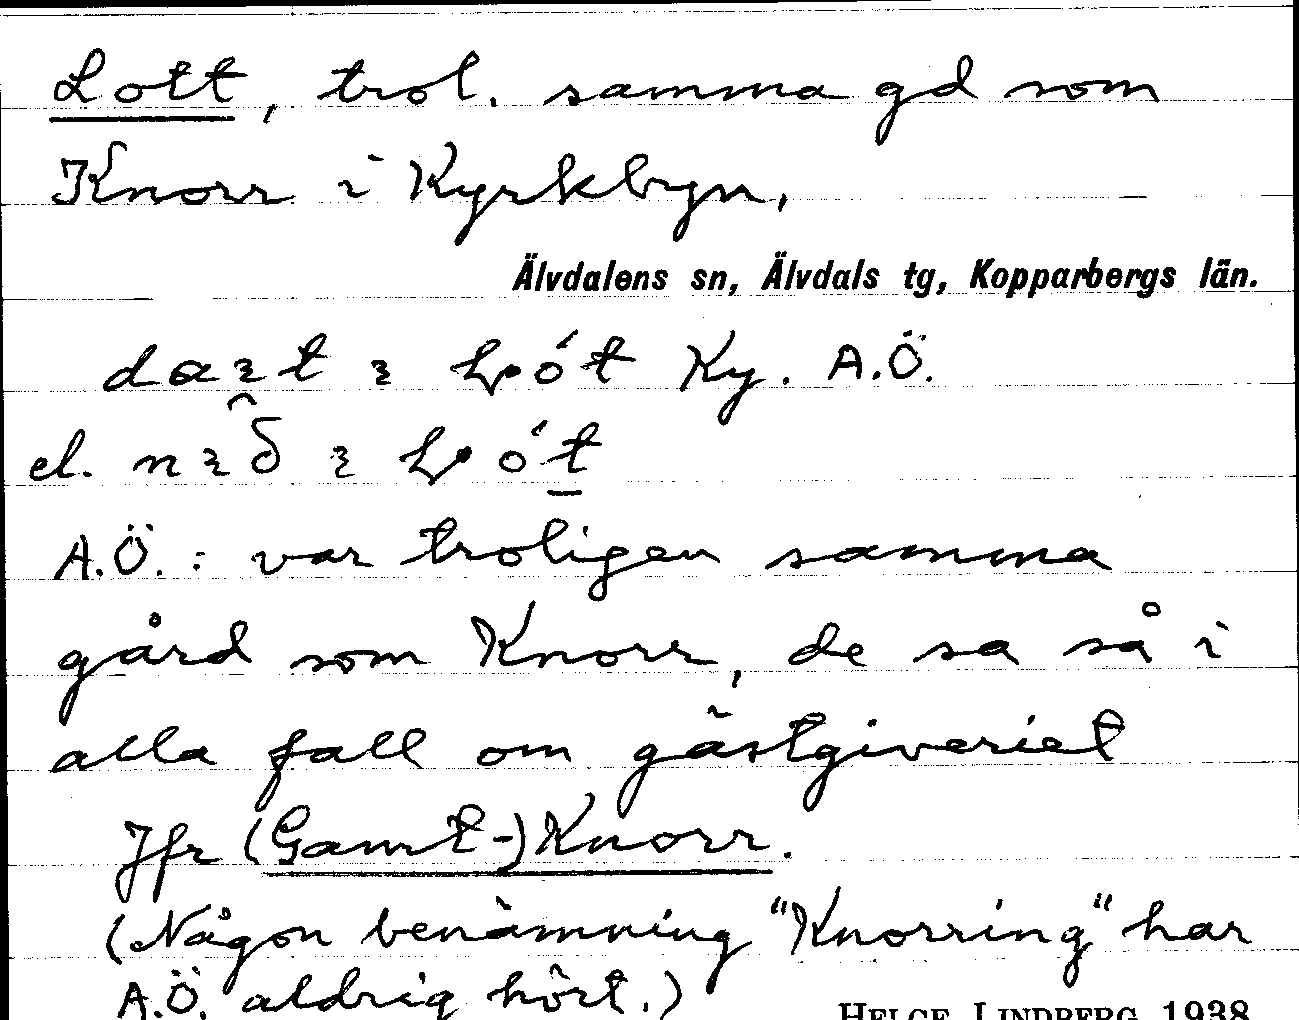 Lott, trol. samma gd som
Knorr i Kyrkbyn,
Älvdalens sn, Älvdals tg, Kopparbergs län.
Ky. A.Ö.
el.
A.Ö. : var troligen samma
gård som Knorr, de sa så i
alla fall om gästgiveriet
Jfr (Gamt-)Knorr.
(Någon benämning "Knorring" har
A.Ö. aldrig hört.)
HELGE LINDBERG 1938